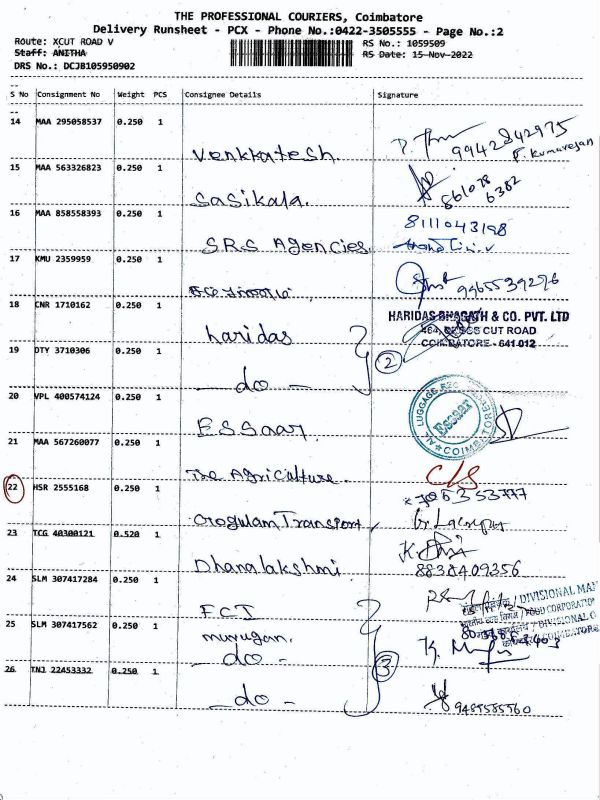 THE PROFESSIONAL COURIERS, Coimbatore
Delivery Runsheet - PCX - Phone No.:0422-3505555 - Page No.:2
Route: XCUT ROAD V
RS No.: 1059509
Staff: ANITHA
RS Date: 15-Nov-2022
DRS No.: DCJB105950902
S No Consignment No Weight PCS Consignee Details Signature
14 MAA 295058537 0.250 1
Venkkatesh. 9942842975
P. Kumaresan
15 MAA 563326823 0.250 1
Sasikala. 861078
6382
16 MAA 858558393 0.250 1
SRS Agencies. 8111043198
17 KMU 2359959 0.250 1
9465539276
18 CNR 1710162 0.250 1
haridas
HARIDAS BHAGATH & CO. PVT. LTD
464, CROSS CUT ROAD
COIMBATORE - 641 012
19 DTY 3710306 0.250 1
- do - 2
20 VPL 400574124 0.250 1
ESSaar.
LUGGAGE
Essaar
COIMBATORE
21 MAA 567260077 0.250 1
The Agriculture. C/S
22 HSR 2555168 0.250 1
Orogulam Transport,
23 TCG 40300121 0.520 1
Dhanalakshmi 8838409356
24 SLM 307417284 0.250 1
FCI
/ DIVISIONAL MAN
/ FOOD CORPORATION
/ DIVISIONAL O
/ COIMBATORE
25 SLM 307417562 0.250 1
murugan.
- do -
3
26 TNJ 22453332 0.250 1
- do - 9485585560